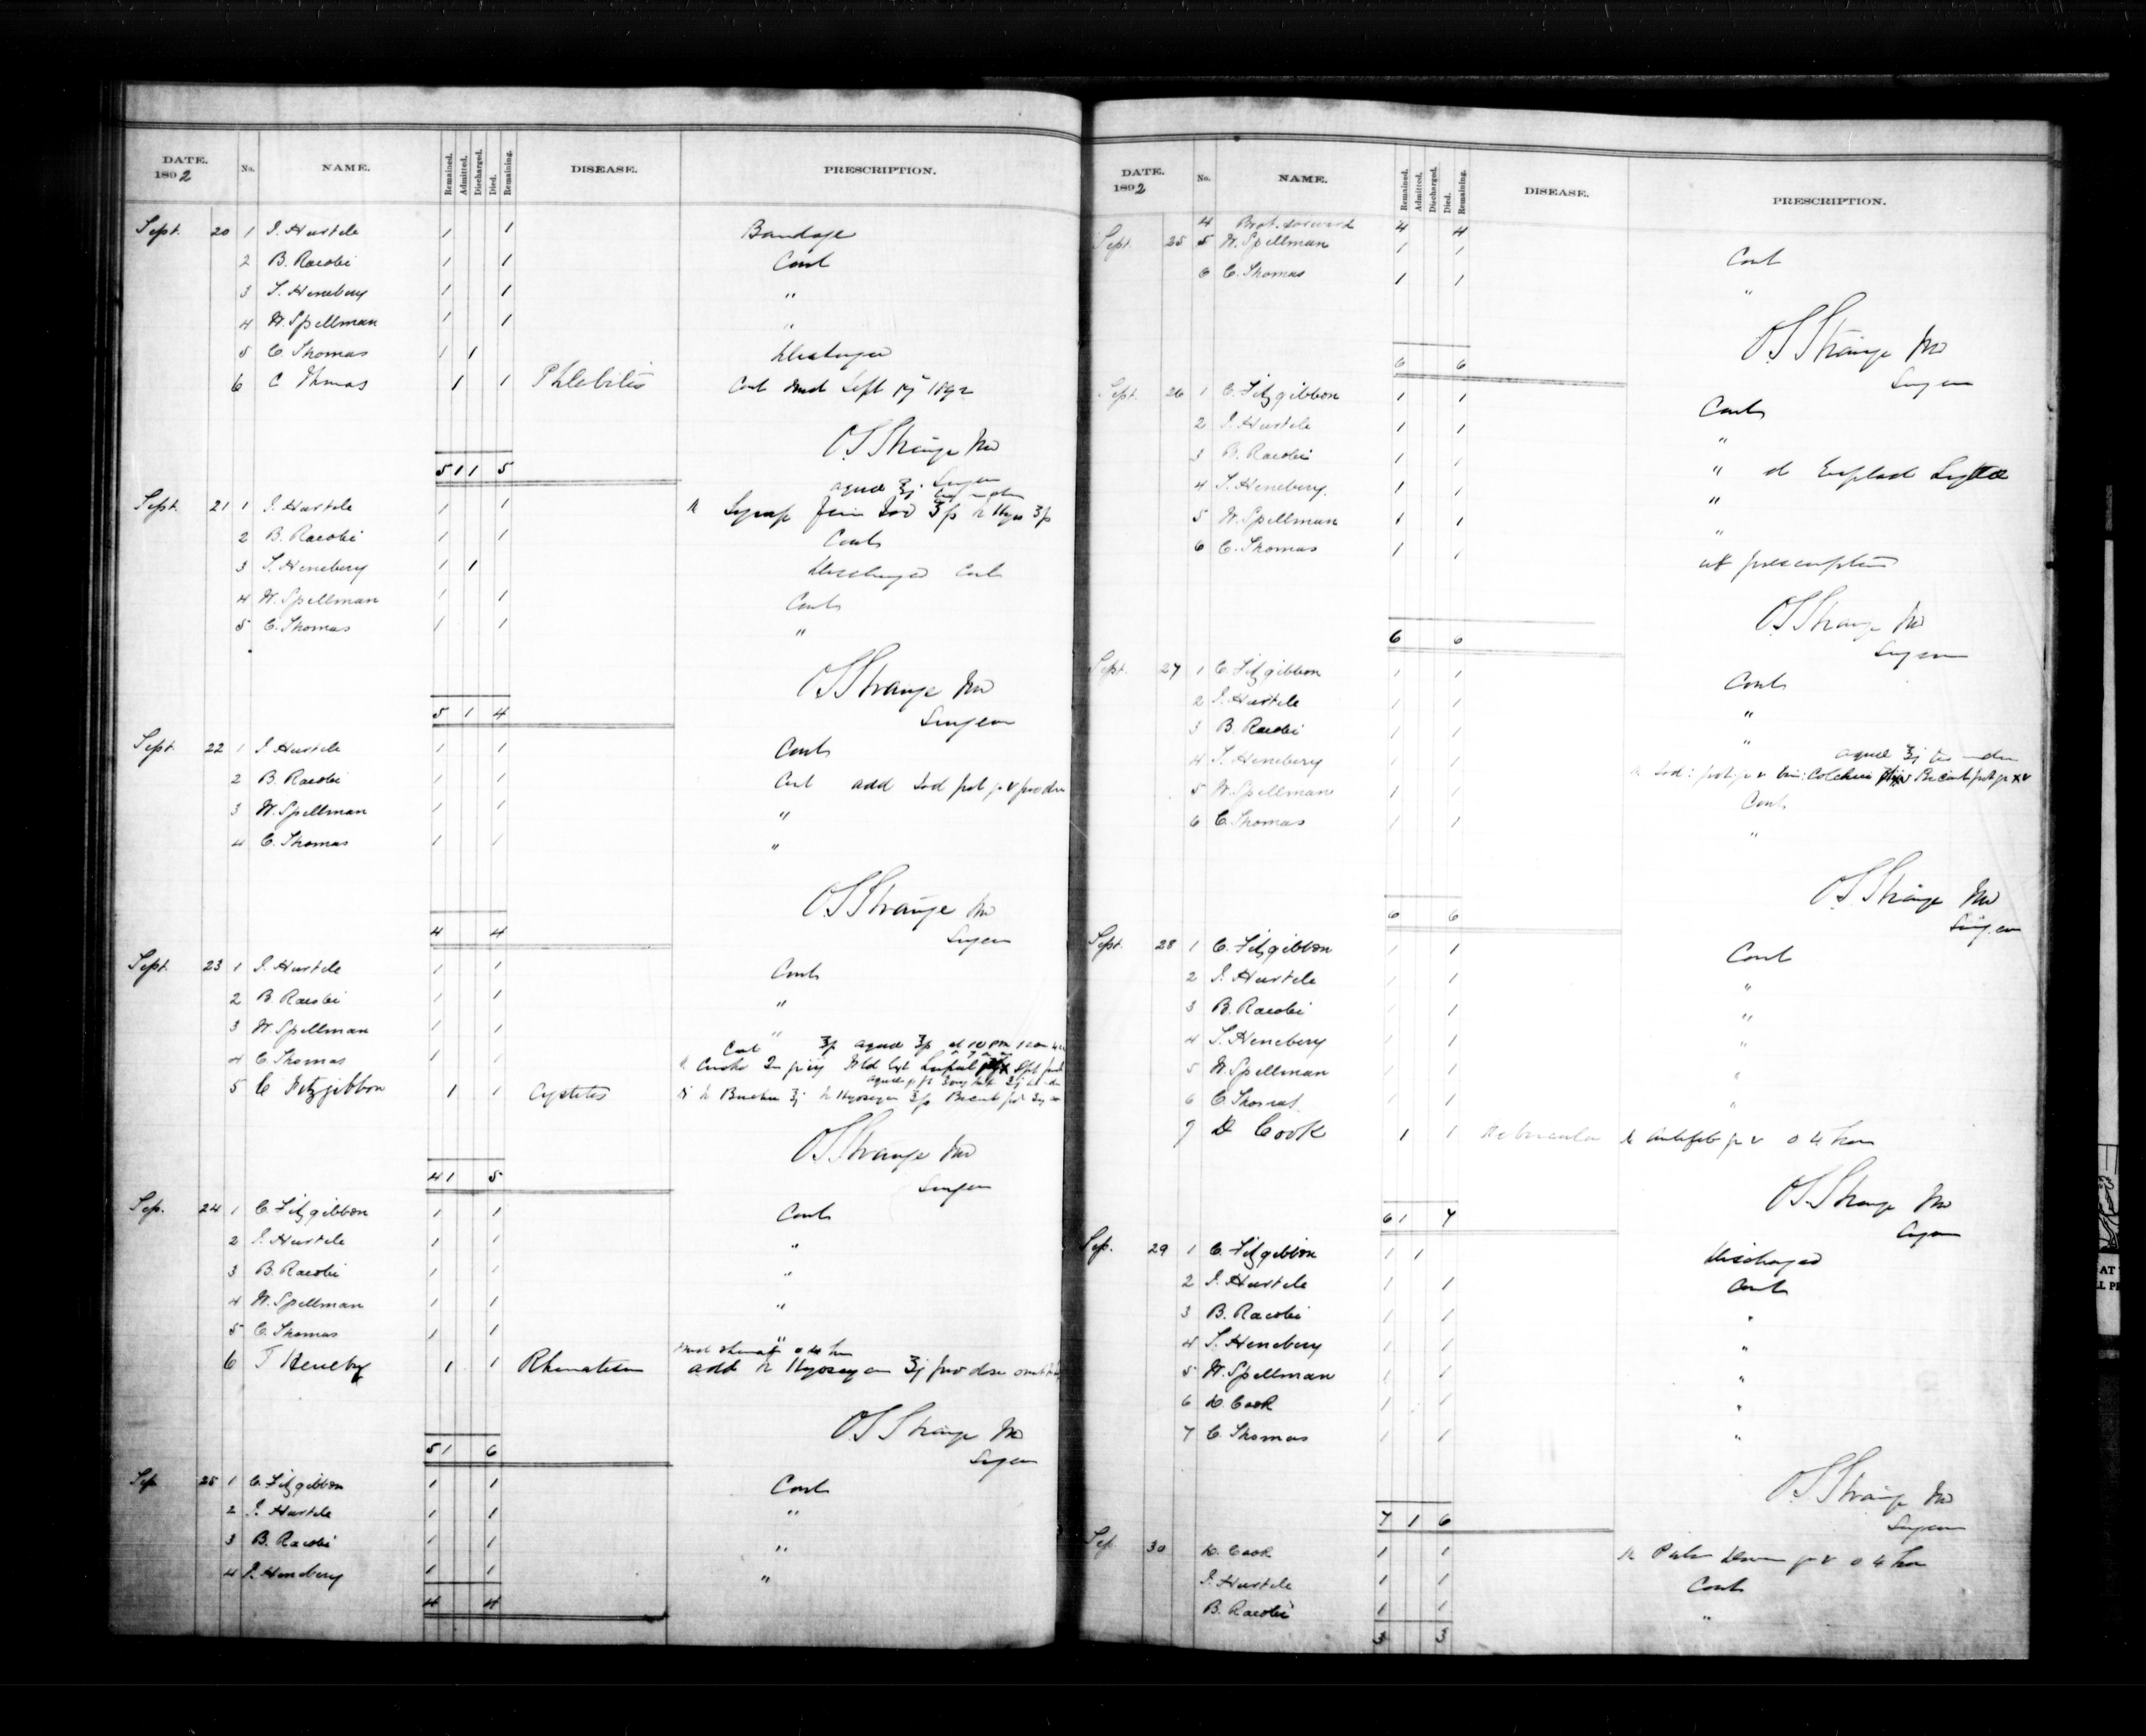 DATE. 1892 No. NAME. Remained. Admitted. Discharged. Died. Remaining. DISEASE. PRESCRIPTION.
Sept. 20 1 J. Hustele 1 1 Bandage
2 B. Racobi 1 1 Cont
3 T. Henebery 1 1 "
4 W. Spellman 1 1 "
5 C. Thomas 1 1 Discharged
6 C Thomas 1 1 Phlebitis Cont Med Sept 17 1892
OS Strange MD
5 1 1 5 Surgeon
aqua ℥j
Sept. 21 1 J. Hustele 1 1 Syrup Ferri Iod ʒß Hyos ʒß
2 B. Racobi 1 1 Cont
3 T. Henebery 1 1 Discharged Cont
4 W. Spellman 1 1 Cont
5 C. Thomas 1 1 "
OS Strange MD
5 1 4 Surgeon
Sept. 22 1 J. Hustele 1 1 Cont
2 B. Racobi 1 1 Cont add Iod pot gr v pro dose
3 W. Spellman 1 1 "
4 C. Thomas 1 1 "
OS Strange MD
4 4 Surgeon
Sept. 23 1 J. Hustele 1 1 Cont
2 B. Racobi 1 1 "
3 W. Spellman 1 1 "
Cont aqua at 10 PM
4 C. Thomas 1 1
5 C Fitzgibbon 1 1 Cystitis Buchu ʒj Hyoscyam ʒß Bicarb pot
OS Strange MD
4 1 5 Surgeon
Sep. 24 1 C. Fitzgibbon 1 1 Cont
2 J. Hustele 1 1 "
3 B. Racobi 1 1 "
4 W. Spellman 1 1 "
5 C. Thomas 1 1 "
6 T Henebry 1 1 Rhumatism add Hyoscyam ʒj pro dose
OS Strange MD
5 1 6 Surgeon
Sep 25 1 C. Fitzgibbon 1 1 Cont
2 J. Hustele 1 1 "
3 B. Racobi 1 1 "
4 T. Henebery 1 1 "
4 4
DATE. 1892 No. NAME. Remained. Admitted. Discharged. Died. Remaining. DISEASE. PRESCRIPTION.
4 Brot. forward 4 4
Sept. 25 5 W. Spellman 1 1 Cont
6 C. Thomas 1 1 "
OS Strange MD
6 6 Surgeon
Sept. 26 1 C. Fitzgibbon 1 1 Cont
2 J. Hustele 1 1 "
3 B. Racobi 1 1 "
4 T. Henebery. 1 1 "
5 W. Spellman 1 1 "
6 C. Thomas 1 1 prescription
OS Strange MD
6 6 Surgeon
Sept. 27 1 C. Fitzgibbon 1 1 Cont
2 J. Hustele 1 1 "
3 B. Racobi 1 1 "
aqua ℥j
4 T. Henebery 1 1 Iod: pot gr v Vin: Colchici Bicarb pot gr xv
5 W. Spellman 1 1 Cont
6 C. Thomas 1 1 "
OS Strange MD
6 6 Surgeon
Sept. 28 1 C. Fitzgibbon 1 1 Cont
2 J. Hustele 1 1 "
3 B. Racobi 1 1 "
4 T. Henebery 1 1 "
5 W. Spellman 1 1 "
6 C. Thomas 1 1 "
7 D Cook 1 1 Antifeb gr v 4 hour
OS Strange MD
6 1 7 Surgeon
Sep. 29 1 C. Fitzgibbon 1 1 Discharged
2 J. Hustele 1 1 Cont
3 B. Racobi 1 1 "
4 T. Henebery 1 1 "
5 W. Spellman 1 1 "
6 D. Cook 1 1 "
7 C. Thomas 1 1 "
OS Strange MD
7 1 6 Surgeon
Sep. 30 D. Cook 1 1 Pulv Dover gr v 4 hour
J. Hustele 1 1 Cont
B. Racobi 1 1 "
3 3